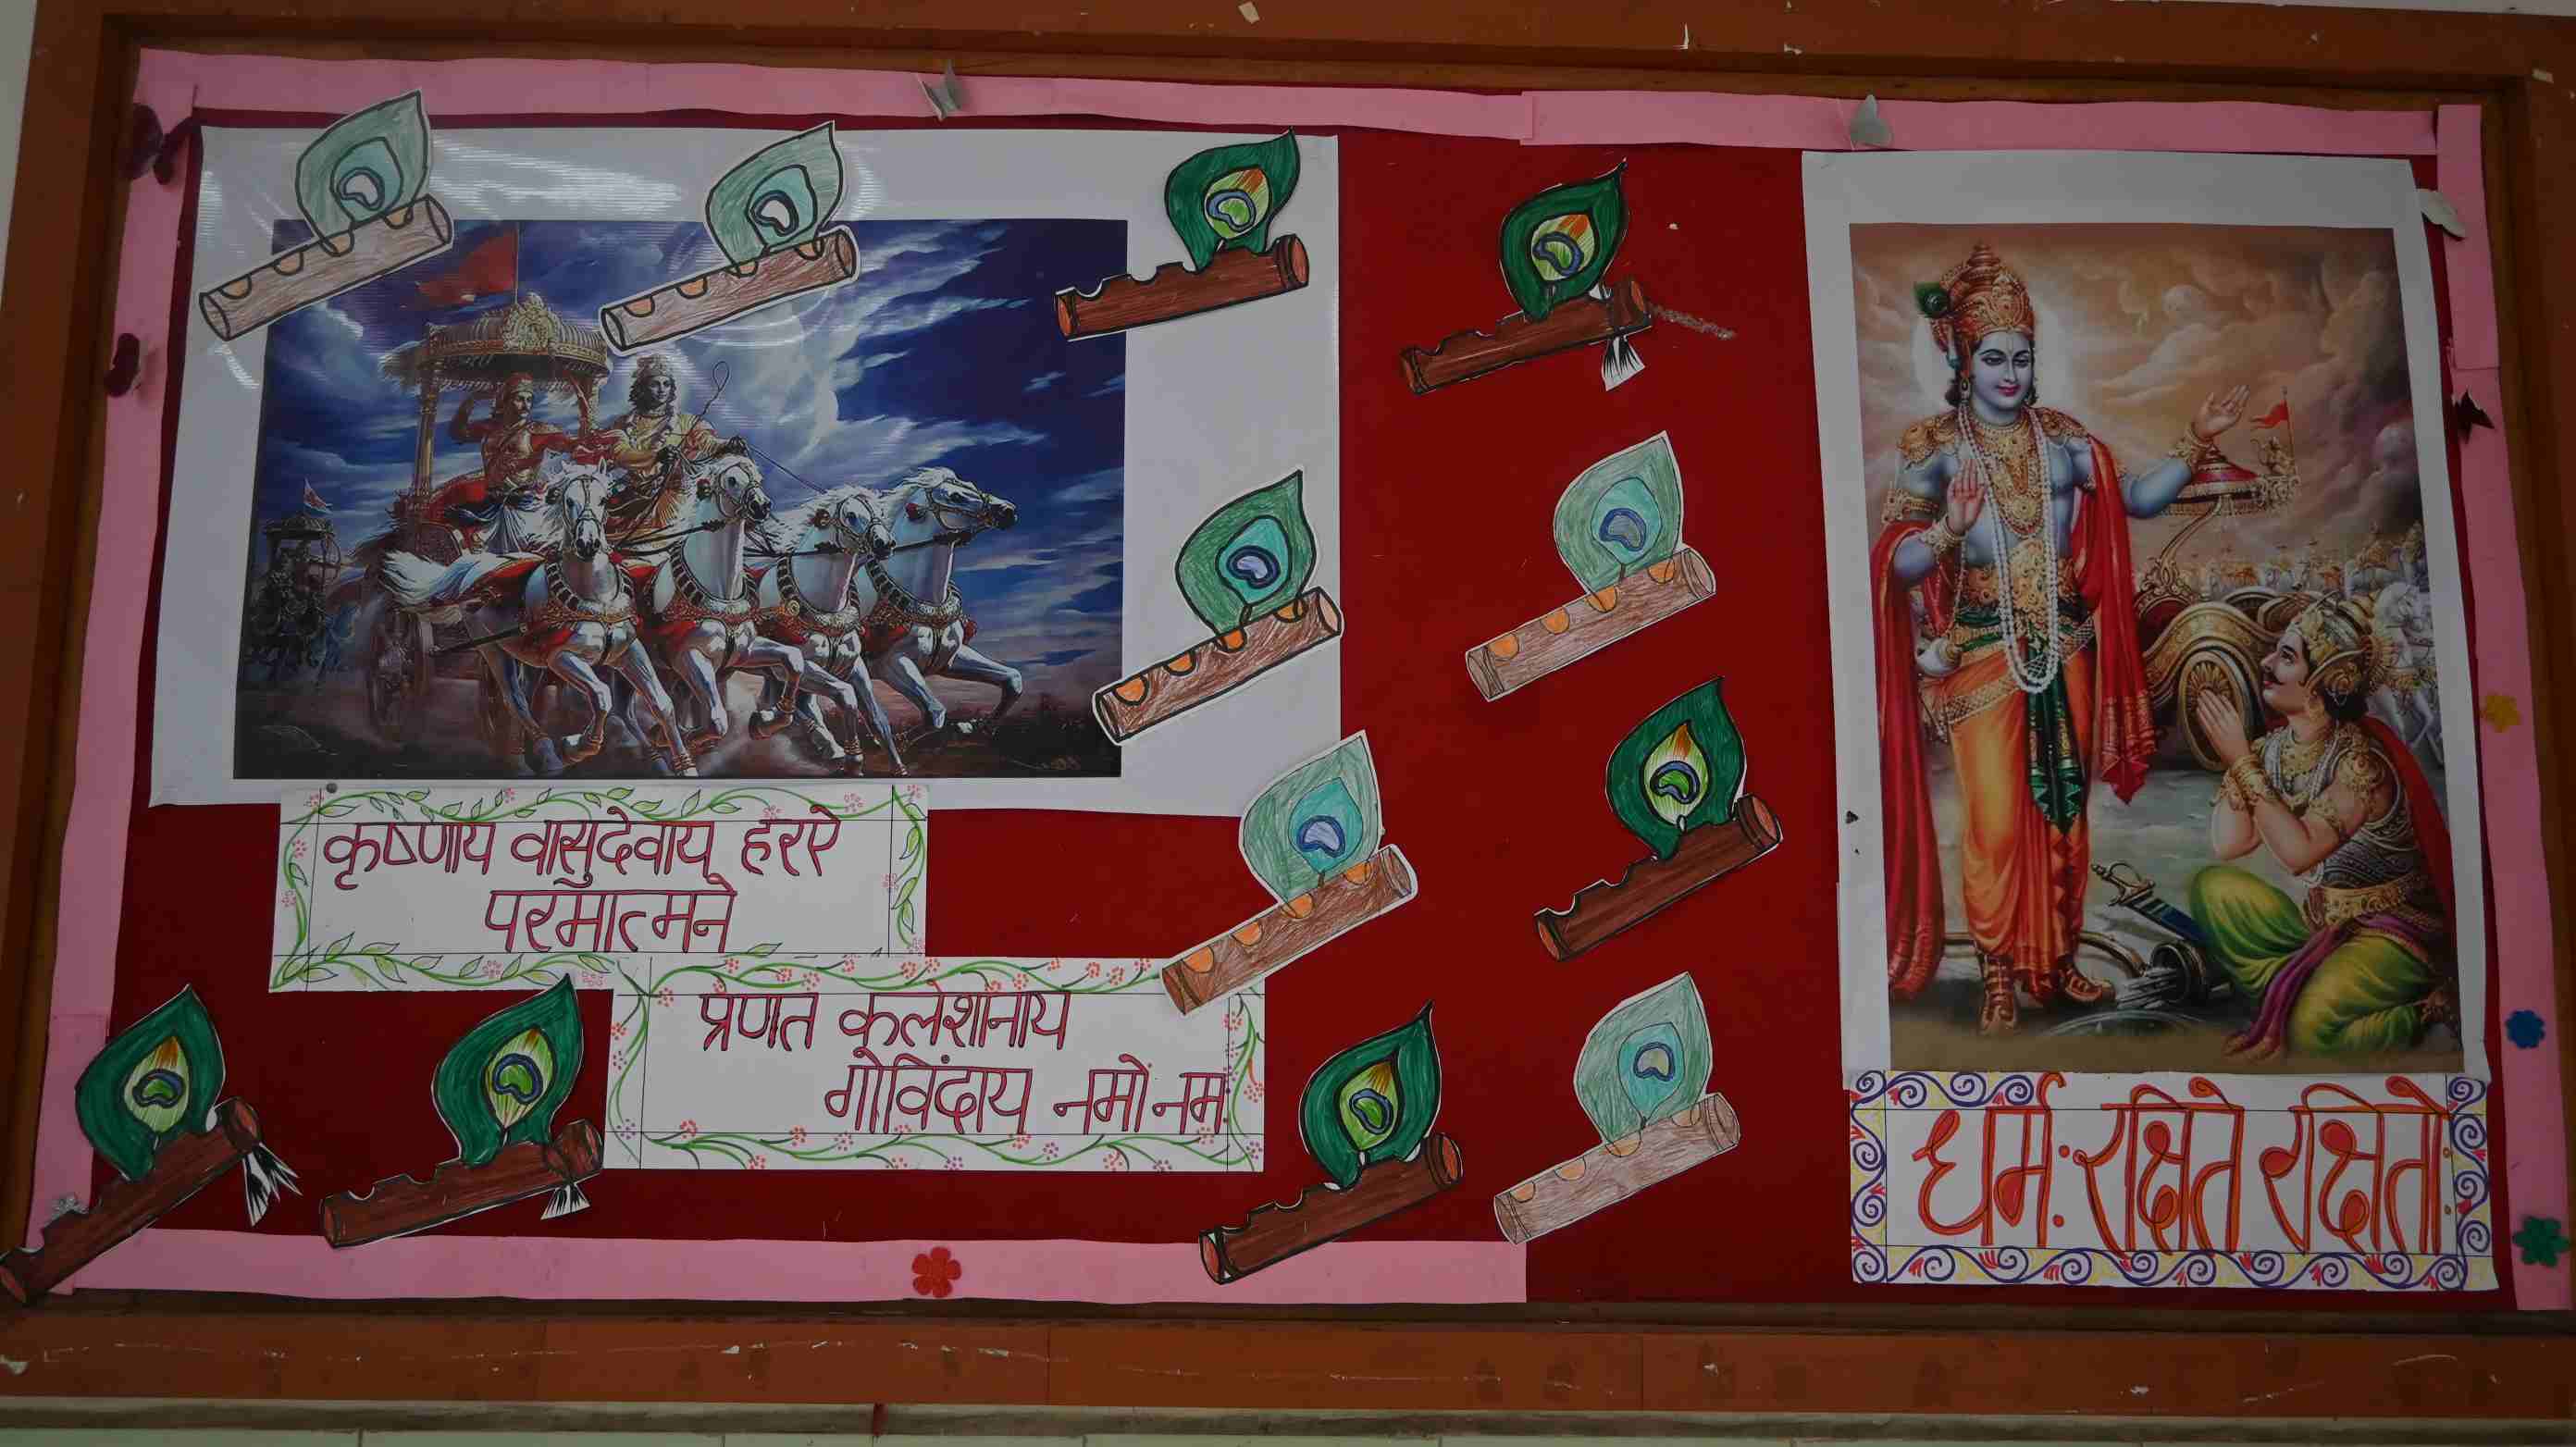 कृष्णाय वासुदेवाय हररे
परमात्मने
प्रणत कलेशानाय
गोविंदाय नमो नमः
धर्मः रक्षिते रक्षितोः